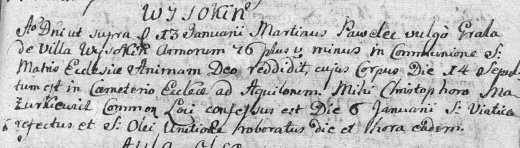 WYSOKIN
Ao Dni ut supra d 13 Januarii Martinus Pawelec vulgò Grala
de Villa Wysokin Annorum 76 plus v minus in Communione S:
Matris Ecclesiæ Animam Deo reddidit, cujus Corpus Die 14 Sepul-
tum est in Cameterio Eccleæ ad Aquilonem. Mihi Christophoro Ma-
zurkiewicz Commen Loci confessus est Die 6 Januarii S: Viatico
refectus et S: Olei Unctione roboratus die et hora eadem.